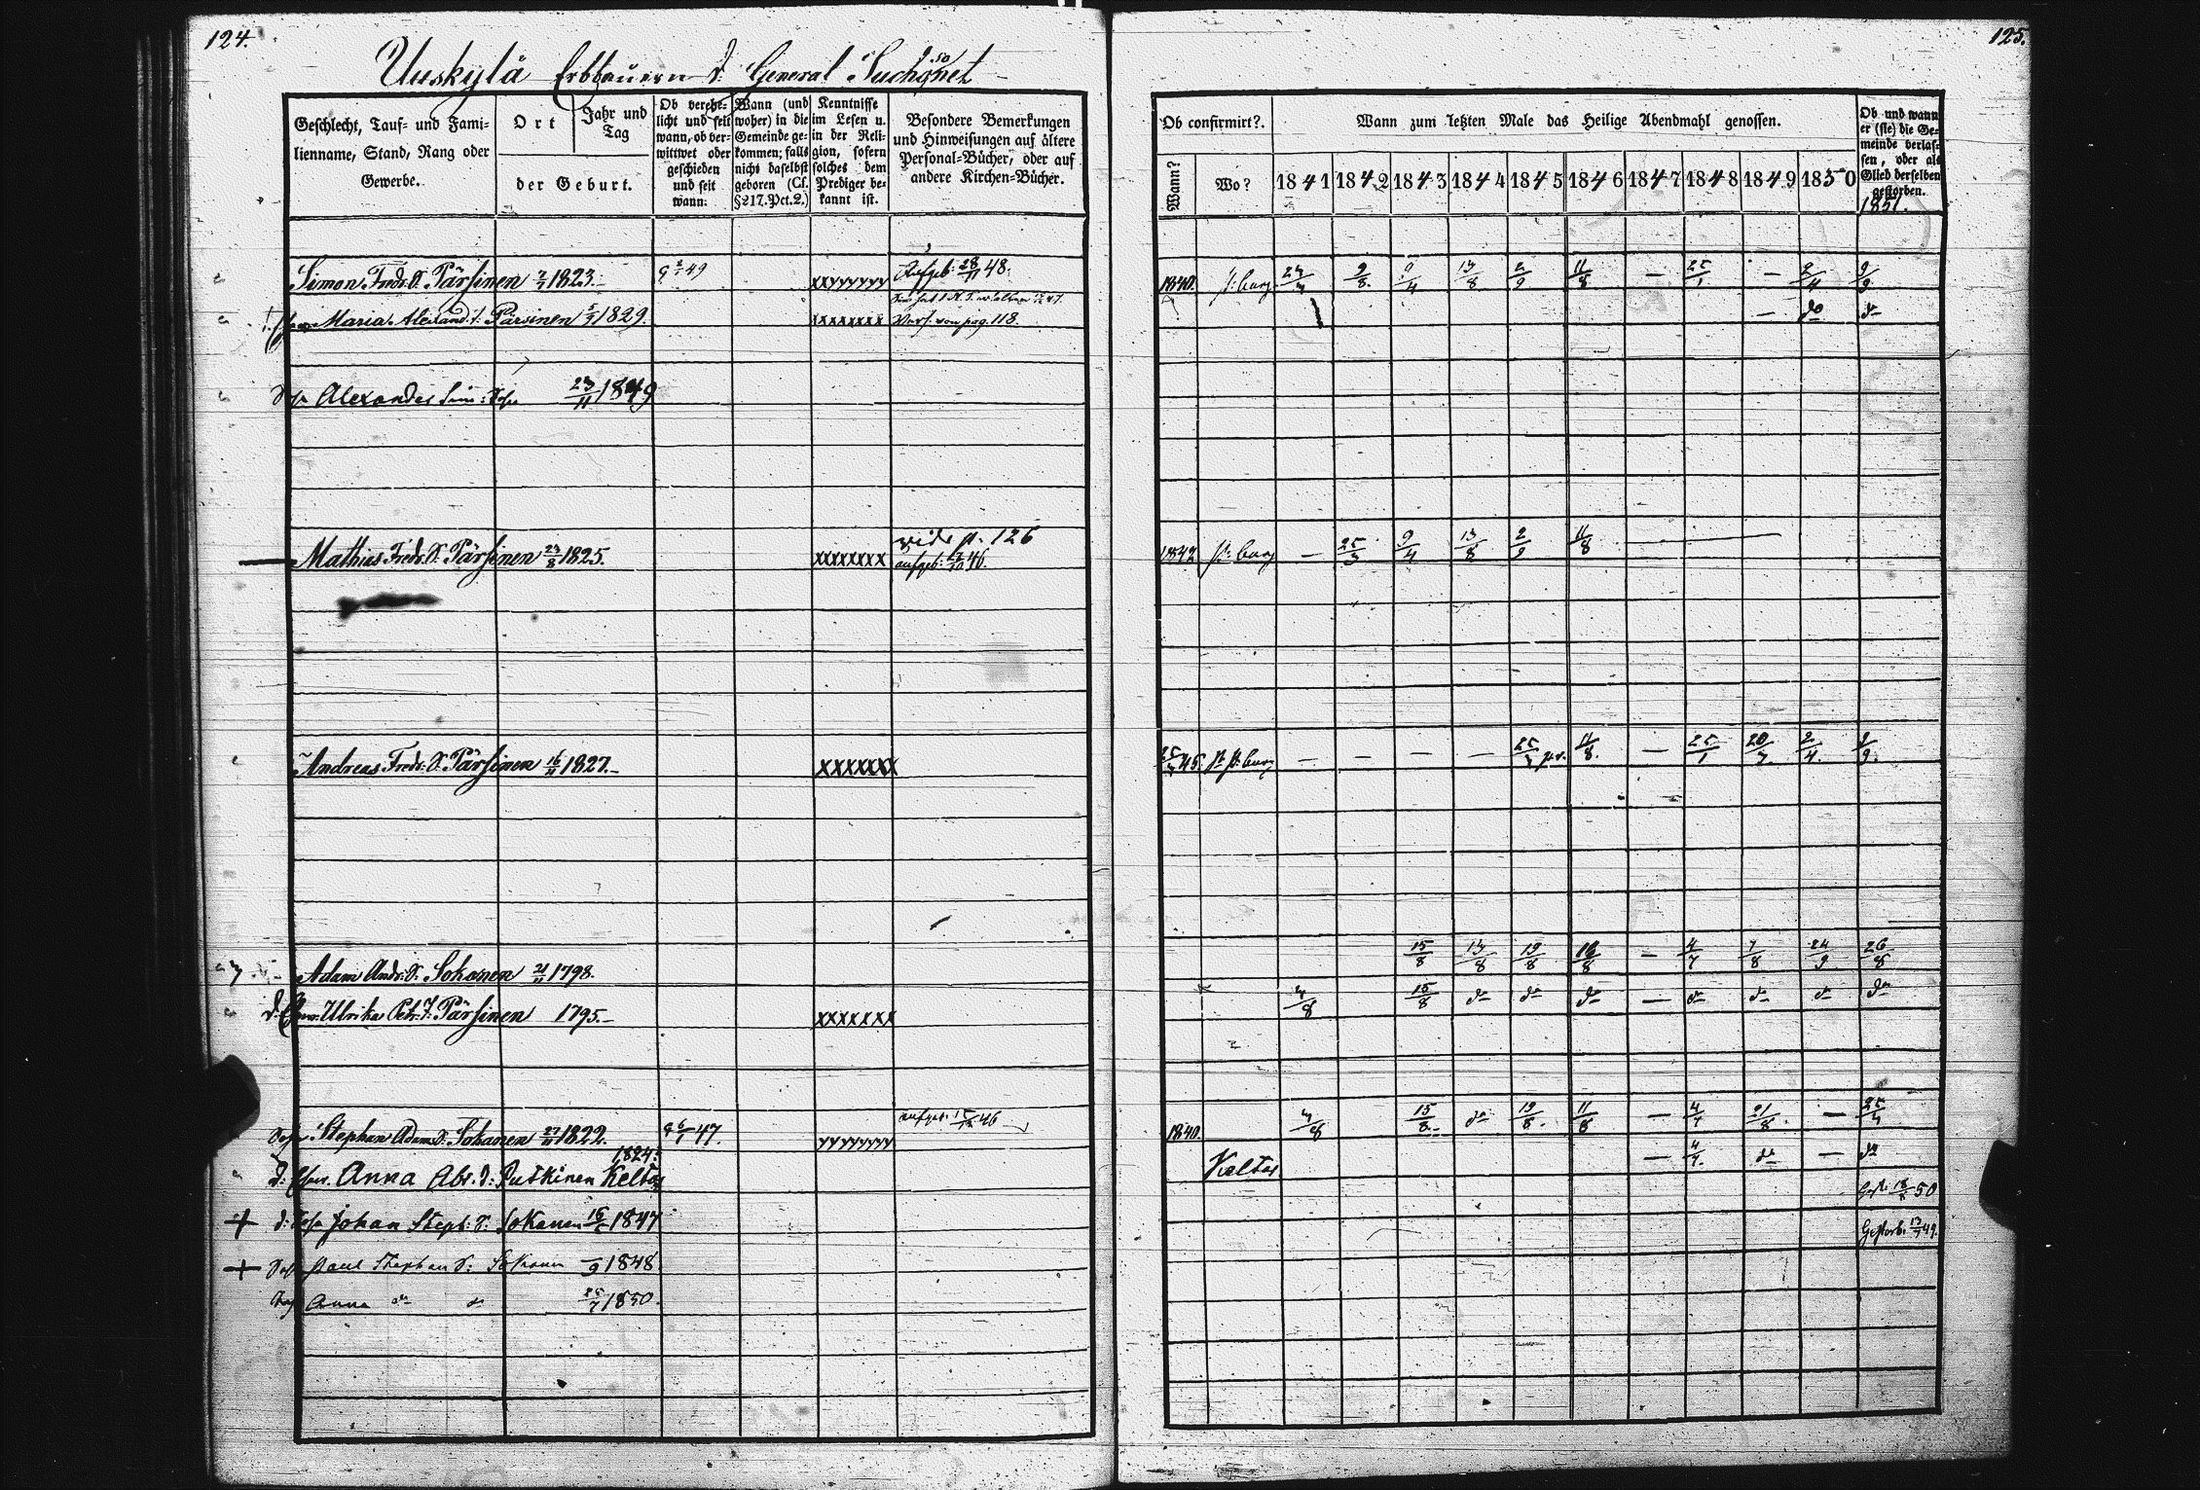 124.
Uuskylä Erbbauern d. General Suchosanet
Geschlecht, Tauf- und Familienname, Stand, Rang oder Gewerbe.
Ort
Jahr und Tag
der Geburt.
Ob verehelicht und seit wann, ob verwittwet oder geschieden und seit wann:
Wann (und woher) in die Gemeinde gekommen; falls nicht daselbst geboren (Cf. § 217. Pct. 2.)
Kenntnisse im Lesen u. in der Religion, sofern solches dem Prediger bekannt ist.
Besondere Bemerkungen und Hinweisungen auf ältere Personal-Bücher, oder auf andere Kirchen-Bücher.
Simon Fredr. S. Pärsinen 1823. 49 xxyyyyyy Aufgeb: 28/11 48.
Maria Alexand. T. Pärsinen 1829. xxxxxxxx pag. 118.
Alexander Sim: 23/11 1849
Mathias Fredr. S. Pärsinen 23/8 1825. xxxxxxxx vide p. 126
aufgeb: 46.
Andreas Fredr. S. Pärsinen 16/11 1827. xxxxxxx
Adam Andr. S. Sokanen 21/11 1798.
Ulrika Petr. T. Pärsinen 1795. xxxxxxx
Stephan Adam S. Sokanen 27/11 1822. 6/1 47. yyyyyyyy aufgeb. 46
1824.
Anna Abr. d: Putkinen Keltos
+ Johan Steph: S. Sokanen 1847
+ Paul Stephan S: Sokanen 9 1848
Anna do do 1850.
125.
Ob confirmirt?
Wann zum letzten Male das Heilige Abendmahl genossen.
Ob und wann er (sie) die Gemeinde verlassen, oder als Glied derselben gestorben.
Wann? Wo? 1841 1842 1843 1844 1845 1846 1847 1848 1849 1850 1851.
1840. P.burg 9/8 9/4 13/8 2/9 11/8 — 25/1 — 2/4 9/9
— do do
1842 P.burg — 25/3 9/4 13/8 2/9 11/8 —
45. St P.burg — — — — 11/8 — 25/1 20/3 2/4 9/9
15/8 13/8 19/8 16/8 — 4/7 7/8 24/9 26/8
3/8 15/8 do do do — do do do do
1840. 3/8 15/8 do 19/8 11/8 — 4/7 21/8 — 25/4
Keltos — 4/7 do — do
Gest. 50
Gestorb. 49.